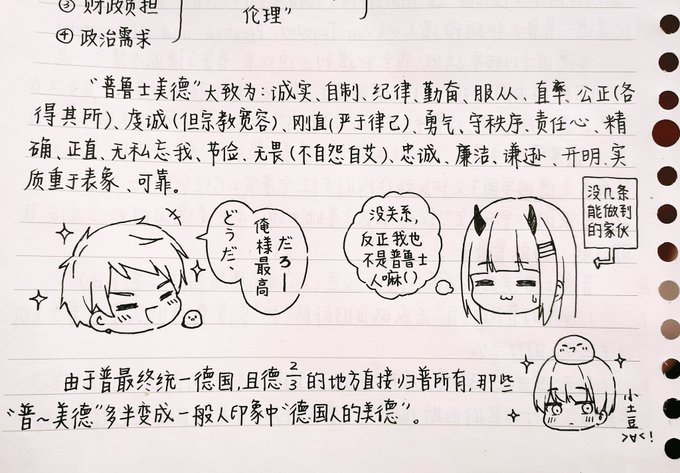 ③ 财政负担
伦理”
④ 政治需求
“普鲁士美德”大致为：诚实、自制、纪律、勤奋、服从、直率、公正(各
得其所)、虔诚(但宗教宽容)、刚直(严于律己)、勇气、守秩序、责任心、精
确、正直、无私忘我、节俭、无畏(不自怨自艾)、忠诚、廉洁、谦逊、开明、实
质重于表象、可靠。
どうだ、
俺様最高
だろー
没关系，
反正我也
不是普鲁士
人嘛()
没几条
能做到
的家伙
由于普最终统一德国，且德2/3的地方直接归普所有，那些
“普～美德”多半变成一般人印象中“德国人的美德”。
小土豆
>v<!